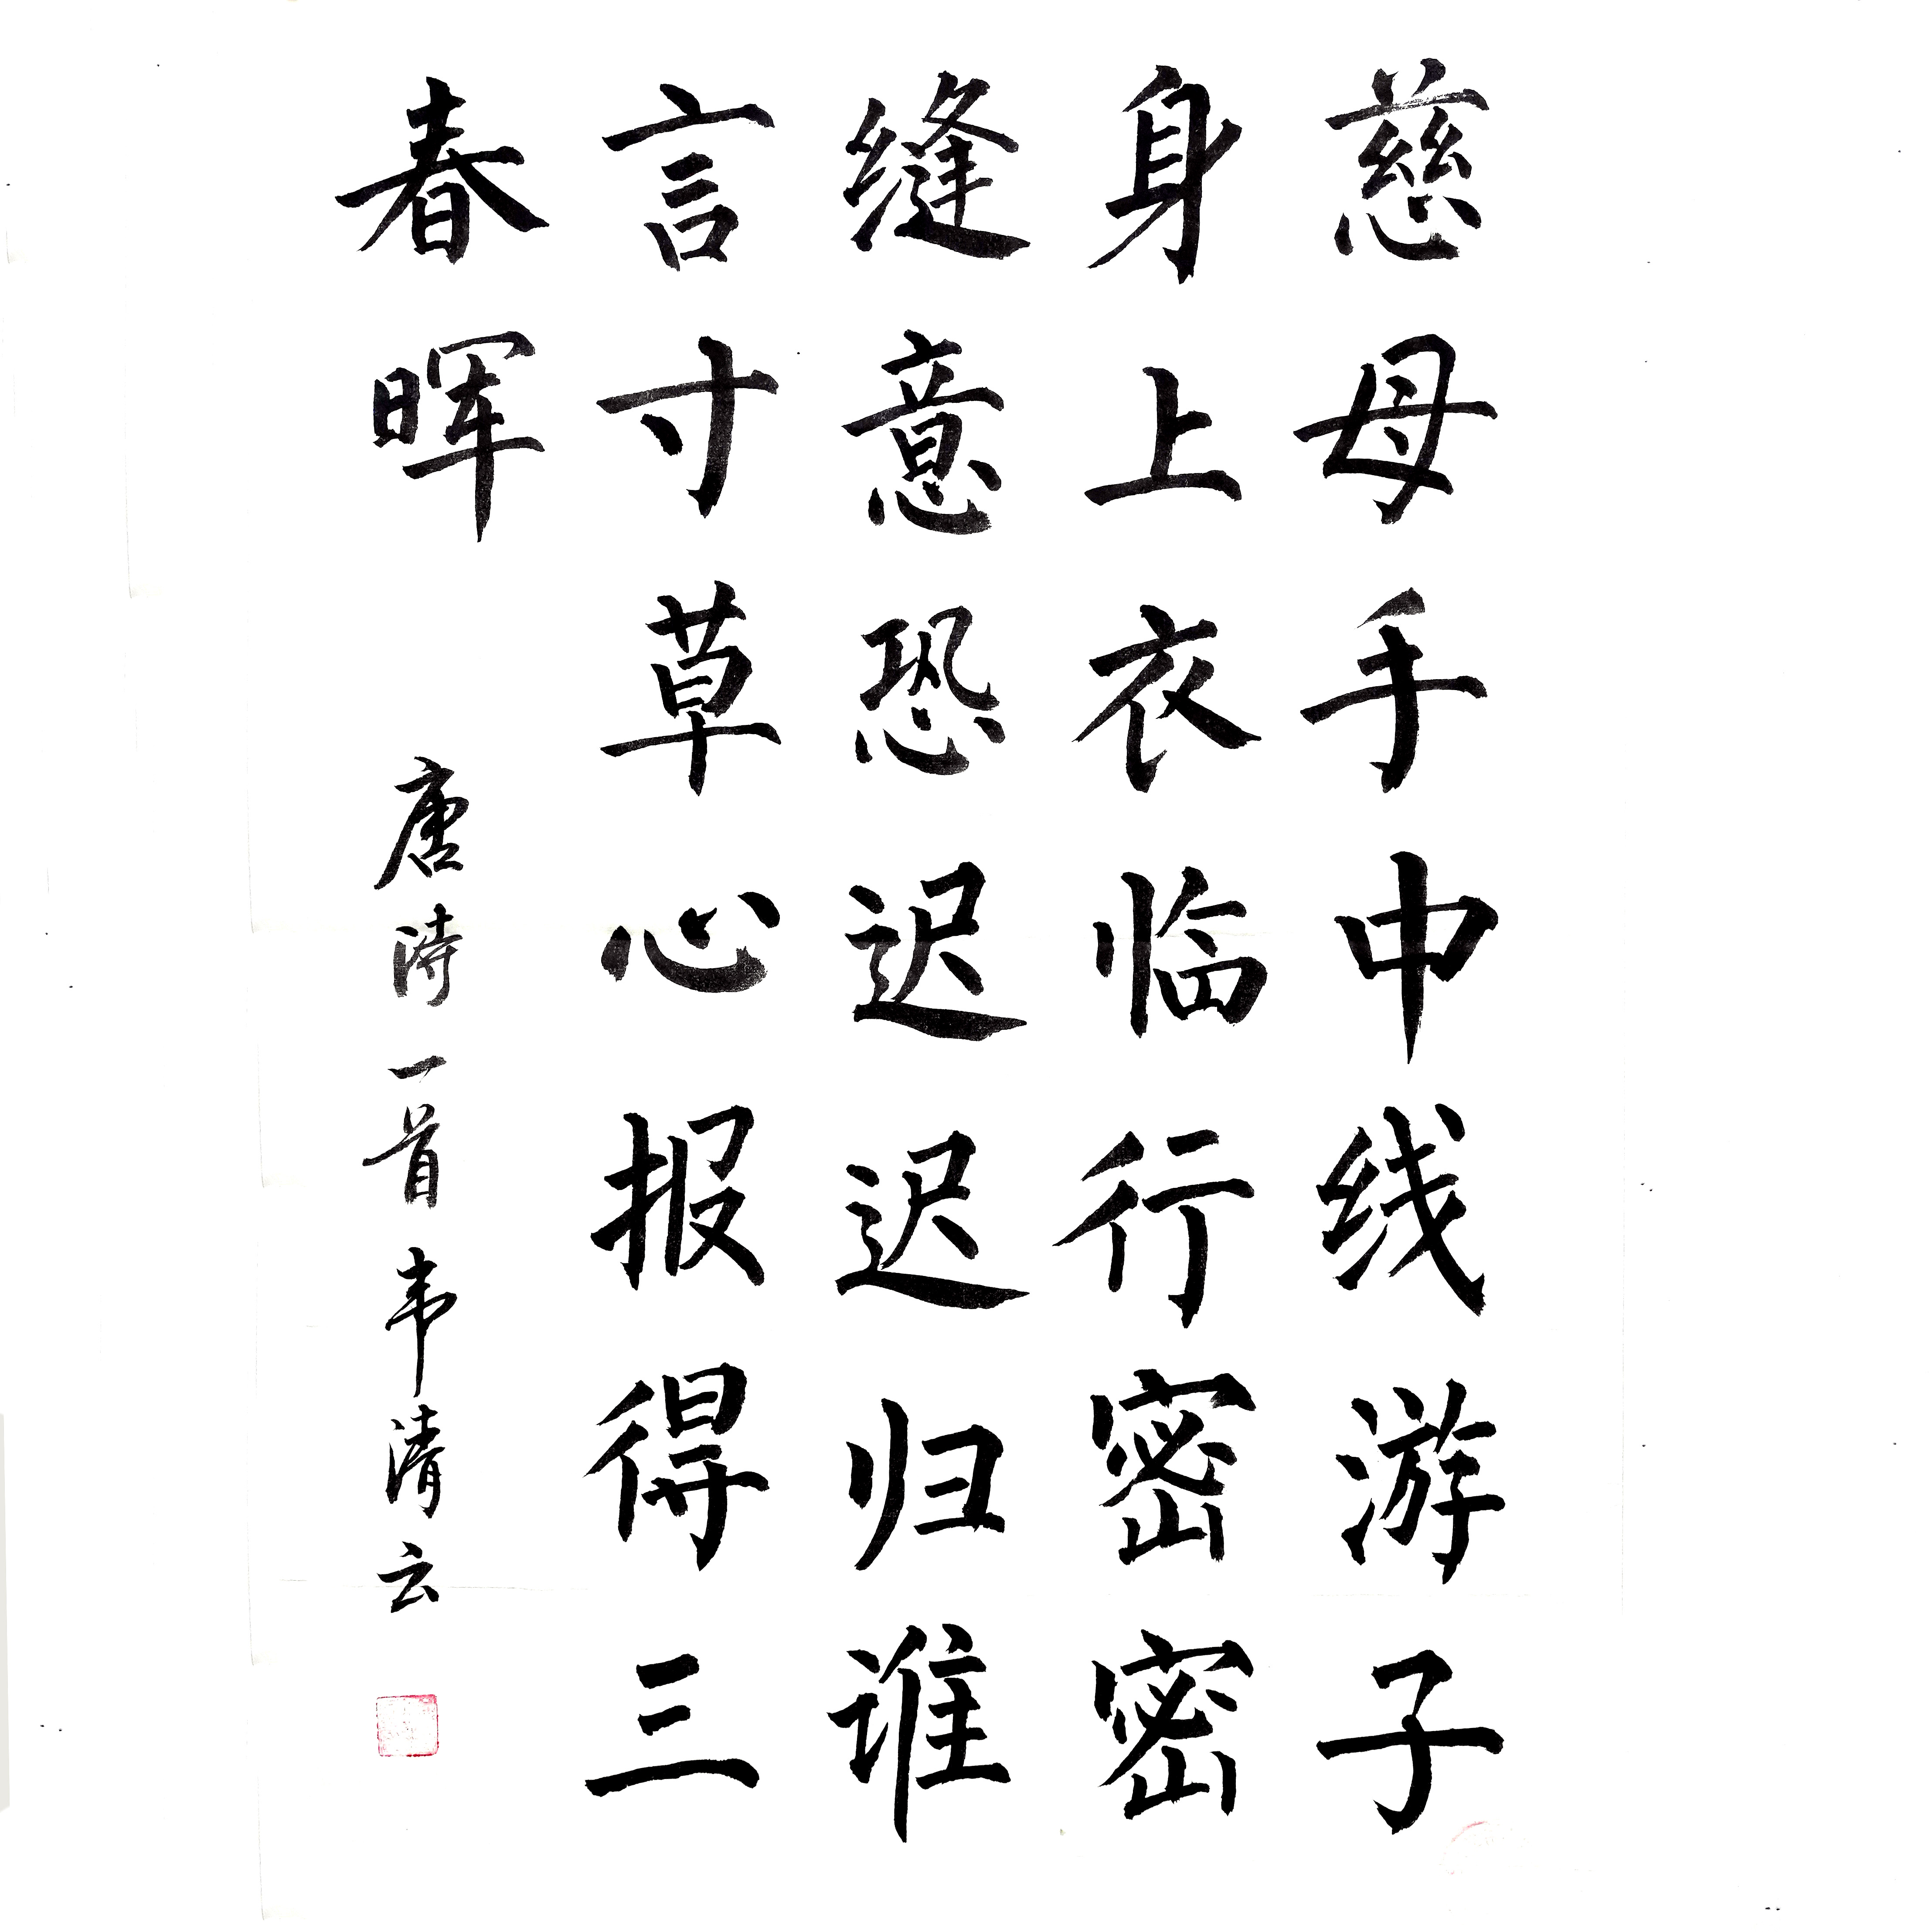 慈母手中线游子
身上衣临行密密
缝意恐迟迟归谁
言寸草心报得三
春晖
唐诗一首韦清云